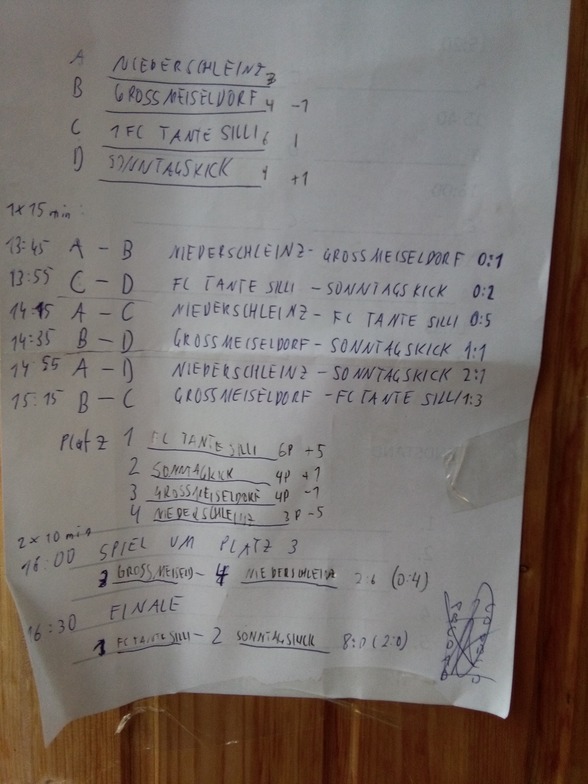 A NIEDERSCHLEINZ 3
B GROSSMEISELDORF 4 -1
C 1 FC TANTE SILLI 6 1
D SONNTAGSKICK 4 +1
1x15 min:
13:45 A - B NIEDERSCHLEINZ - GROSSMEISELDORF 0:1
13:55 C - D FC TANTE SILLI - SONNTAGSKICK 0:2
14:15 A - C NIEDERSCHLEINZ - FC TANTE SILLI 0:5
14:35 B - D GROSSMEISELDORF - SONNTAGSKICK 1:1
14 55 A - D NIEDERSCHLEINZ - SONNTAGSKICK 2:1
15:15 B - C GROSSMEISELDORF - FC TANTE SILLI 1:3
Platz 1 FC TANTE SILLI 6P +5
2 SONNTAGKICK 4P +1
3 GROSSMEISELDORF 4P -1
4 NIEDERSCHLEINZ 3P -5
2 x 10 min
16:00 SPIEL UM PLATZ 3
3 GROSSMEISELD - 4 NIEDERSCHLEINZ 2:6 (0:4)
16:30 FINALE
1 FC TANTE SILLI - 2 8:0 (2:0)